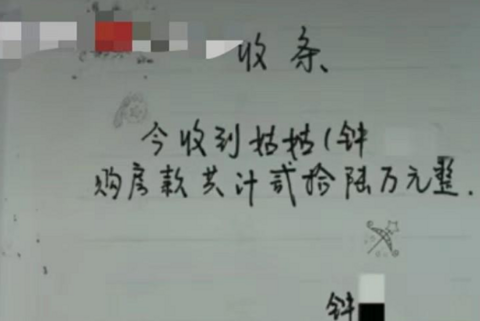 收条
今收到姑姑(钟
购房款共计贰拾陆万元整.
钟